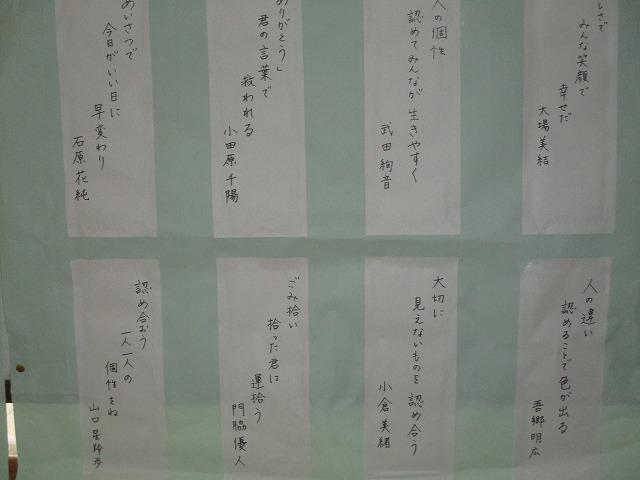 しさで
みんな笑顔で
幸せだ
大場美結
人の個性
認めてみんなが生きやすく
武田絢音
ありがとう」
君の言葉で
救われる
小田原千陽
あいさつで
今日がいい日に
早変わり
石原花純
人の違い
認めることで色が出る
吾郷明広
大切に
見えないものを認め合う
小倉美緒
ごみ拾い
拾った君は
運拾う
門脇優人
認め合おう
一人一人の
個性をね
山口星